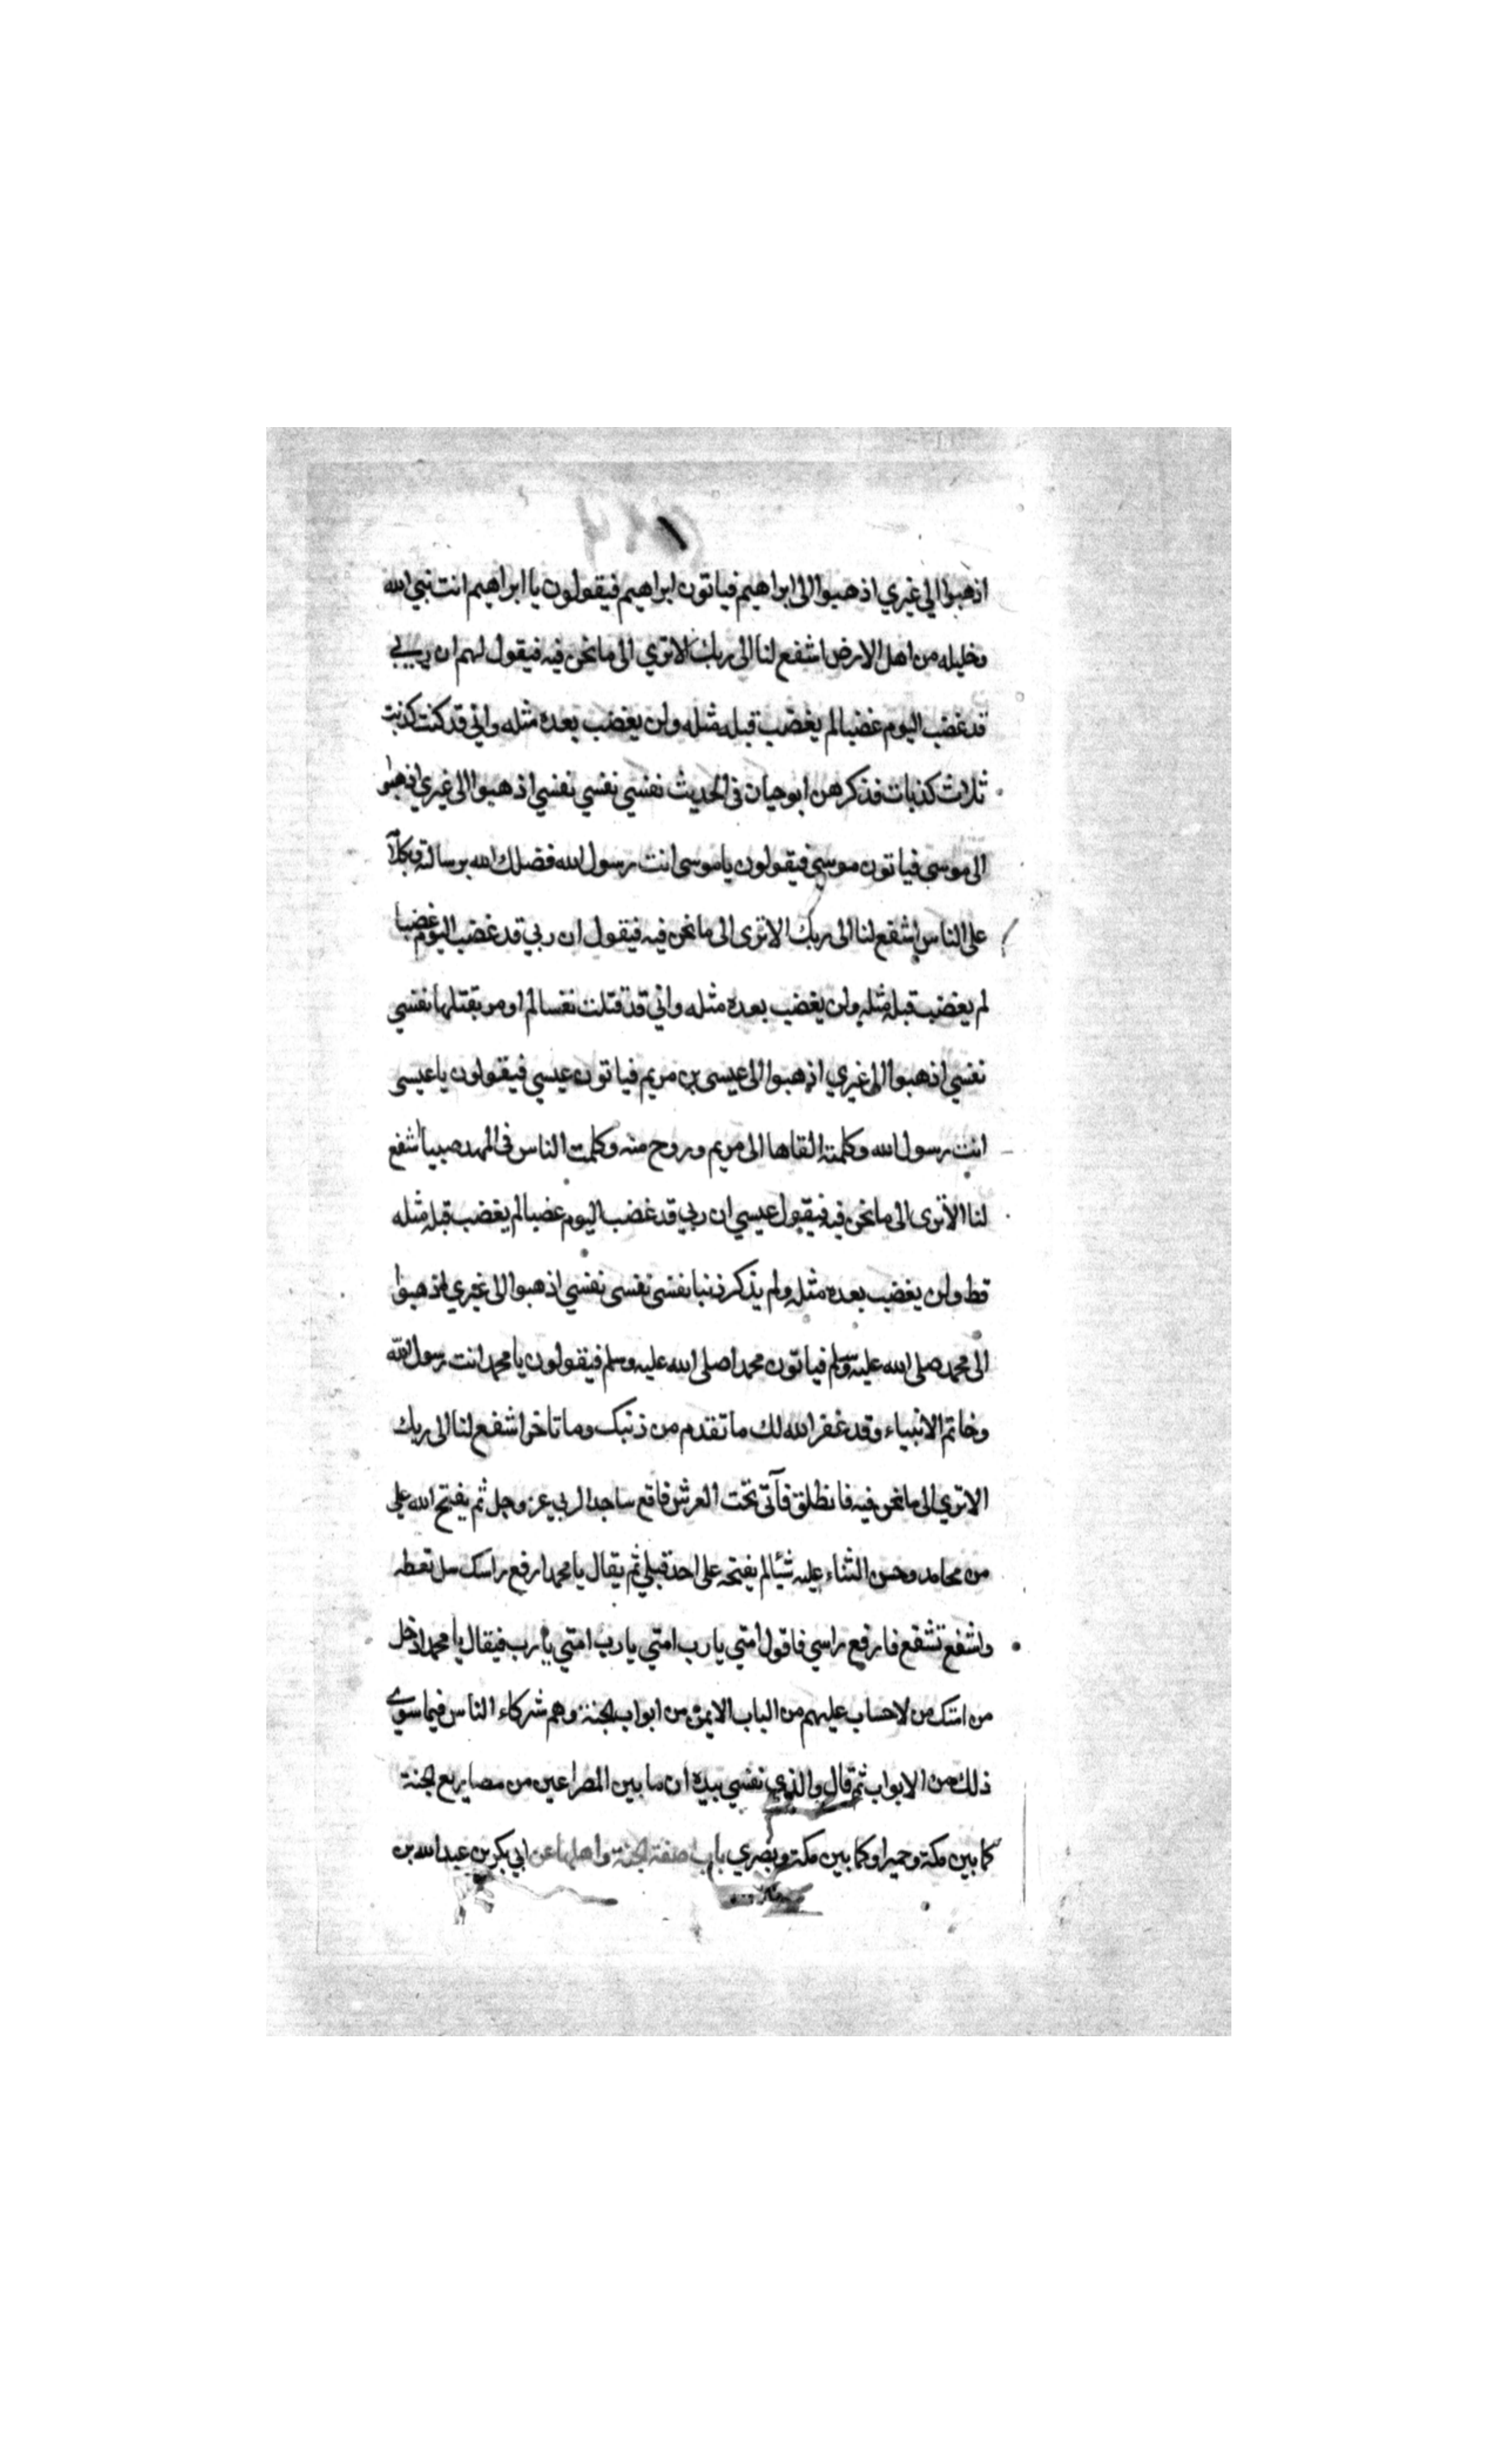 اذهبوا الي غيري اذهبوا الى ابراهيم فياتون ابراهيم فيقولون يا ابراهيم انت نبي الله
وخليله من اهل الارض اشفع لنا الى ربك الا تري الى ما نحن فيه فيقول لهم ان ربي
قد غضب اليوم غضبا لم يغضب قبله مثله ولن يغضب بعده مثله واني قد كنت كذبت
ثلاث كذبات فذكرهن ابو حيان في الحديث نفسي نفسي نفسي اذهبوا الى غيري اذهبوا
الى موسى فياتون موسى فيقولون يا موسى انت رسول الله فضلك الله برسالته وبكلامه
على الناس اشفع لنا الى ربك الا ترى الى ما نحن فيه فيقول ان ربي قد غضب اليوم غضبا
لم يغضب قبله مثله ولن يغضب بعده مثله واني قد قتلت نفسا لم اومر بقتلها نفسي
نفسي اذهبوا الى غيري اذهبوا الى عيسى بن مريم فياتون عيسي فيقولون يا عيسى
انت رسول الله وكلمته القاها الى مريم وروح منه وكلمت الناس في المهد صبيا اشفع
لنا الا ترى الى ما نحن فيه فيقول عيسي ان ربي قد غضب اليوم غضبا لم يغضب قبله مثله
قط ولن يغضب بعده مثله ولم يذكر ذنبا نفسي نفسى نفسي اذهبوا الى غيري اذهبوا
الى محمد صلى الله عليه وسلم فياتون محمدا صلى الله عليه وسلم فيقولون يا محمد انت رسول الله
وخاتم الانبياء وقد غفر الله لك ما تقدم من ذنبك وما تاخر اشفع لنا الى ربك
الا تري الى ما نحن فيه فانطلق فآتي تحت العرش فاقع ساجدا لربي عز وجل ثم يفتح الله علي
من محامده وحسن الثناء عليه شيئا لم يفتحه على احد قبلي ثم يقال يا محمد ارفع راسك سل تعطه
واشفع تشفع فارفع راسي فاقول امتي يا رب امتي يا رب امتي يا رب فيقال يا محمد ادخل
من امتك من لا حساب عليهم من الباب الايمن من ابواب الجنة وهم شركاء الناس فيما سوي
ذلك من الابواب ثم قال والذي نفسي بيده ان ما بين المصراعين من مصاريع الجنة
كما بين مكة وحمير او كما بين مكة وبصري باب صفة الجنة واهلها عن ابي بكر بن عبد الله بن